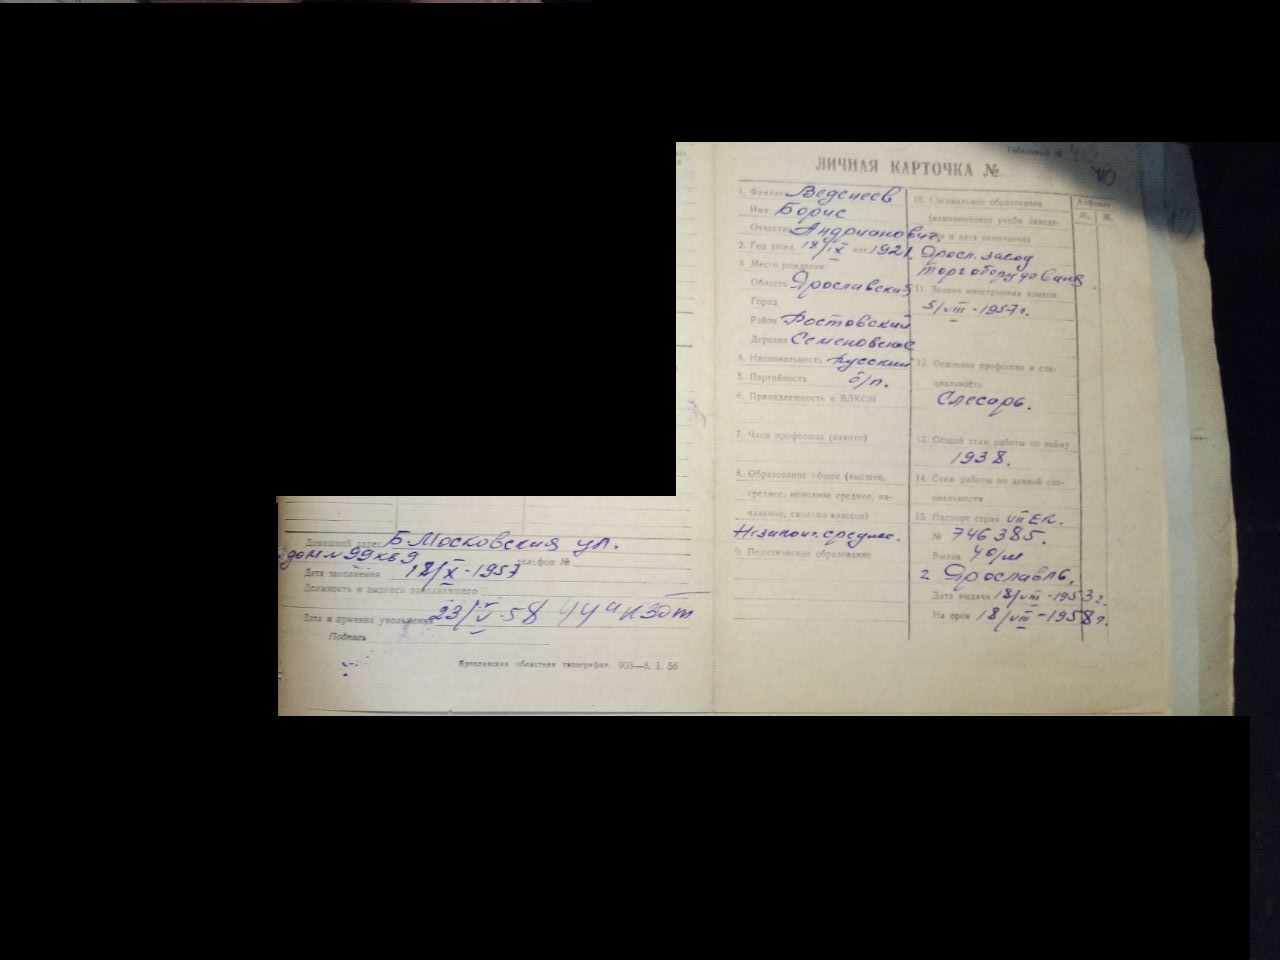 Табельный №
ЛИЧНАЯ КАРТОЧКА №
1. Фамилия Веденеев
Имя Борис
Отчество Андрианович
2. Год рожд. 18/IX мес. 1921.
3. Место рождения:
Область Ярославский
Город
Район Ростовский
Деревня Семеновское
4. Национальность Русский
5. Партийность б/п.
6. Принадлежность к ВЛКСМ
7. Член профсоюза (какого)
8. Образование общее (высшее,
среднее, неполное среднее, на-
чальное, сколько классов)
Незаконч. средне.
9. Политическое образование
10. Специальное образование
(наименование учебн. заведе-
ния и дата окончания)
Яросл. завод
торгоборудования
11. Знание иностранных языков
5/VIII-1957г.
12. Основная профессия и спе-
циальность
Слесарь.
13. Общий стаж работы по найму
1938.
14. Стаж работы по данной спе-
циальности
15. Паспорт серия VII ЕК.
№ 746385.
Выдан 4о/м
г Ярославль,
Дата выдачи 18/VIII-1953г.
На срок 18/VIII-1958г.
Алфавит
М. Ж.
Домашний адрес Б Московская ул.
дом № 99 кв 9 телефон №
Дата заполнения 18/X-1957
Должность и подпись заполнявшего
Дата и причина увольнения 23/V-58 КЗОТ
Подпись
Ярославская областная типография. 903—8. I. 56